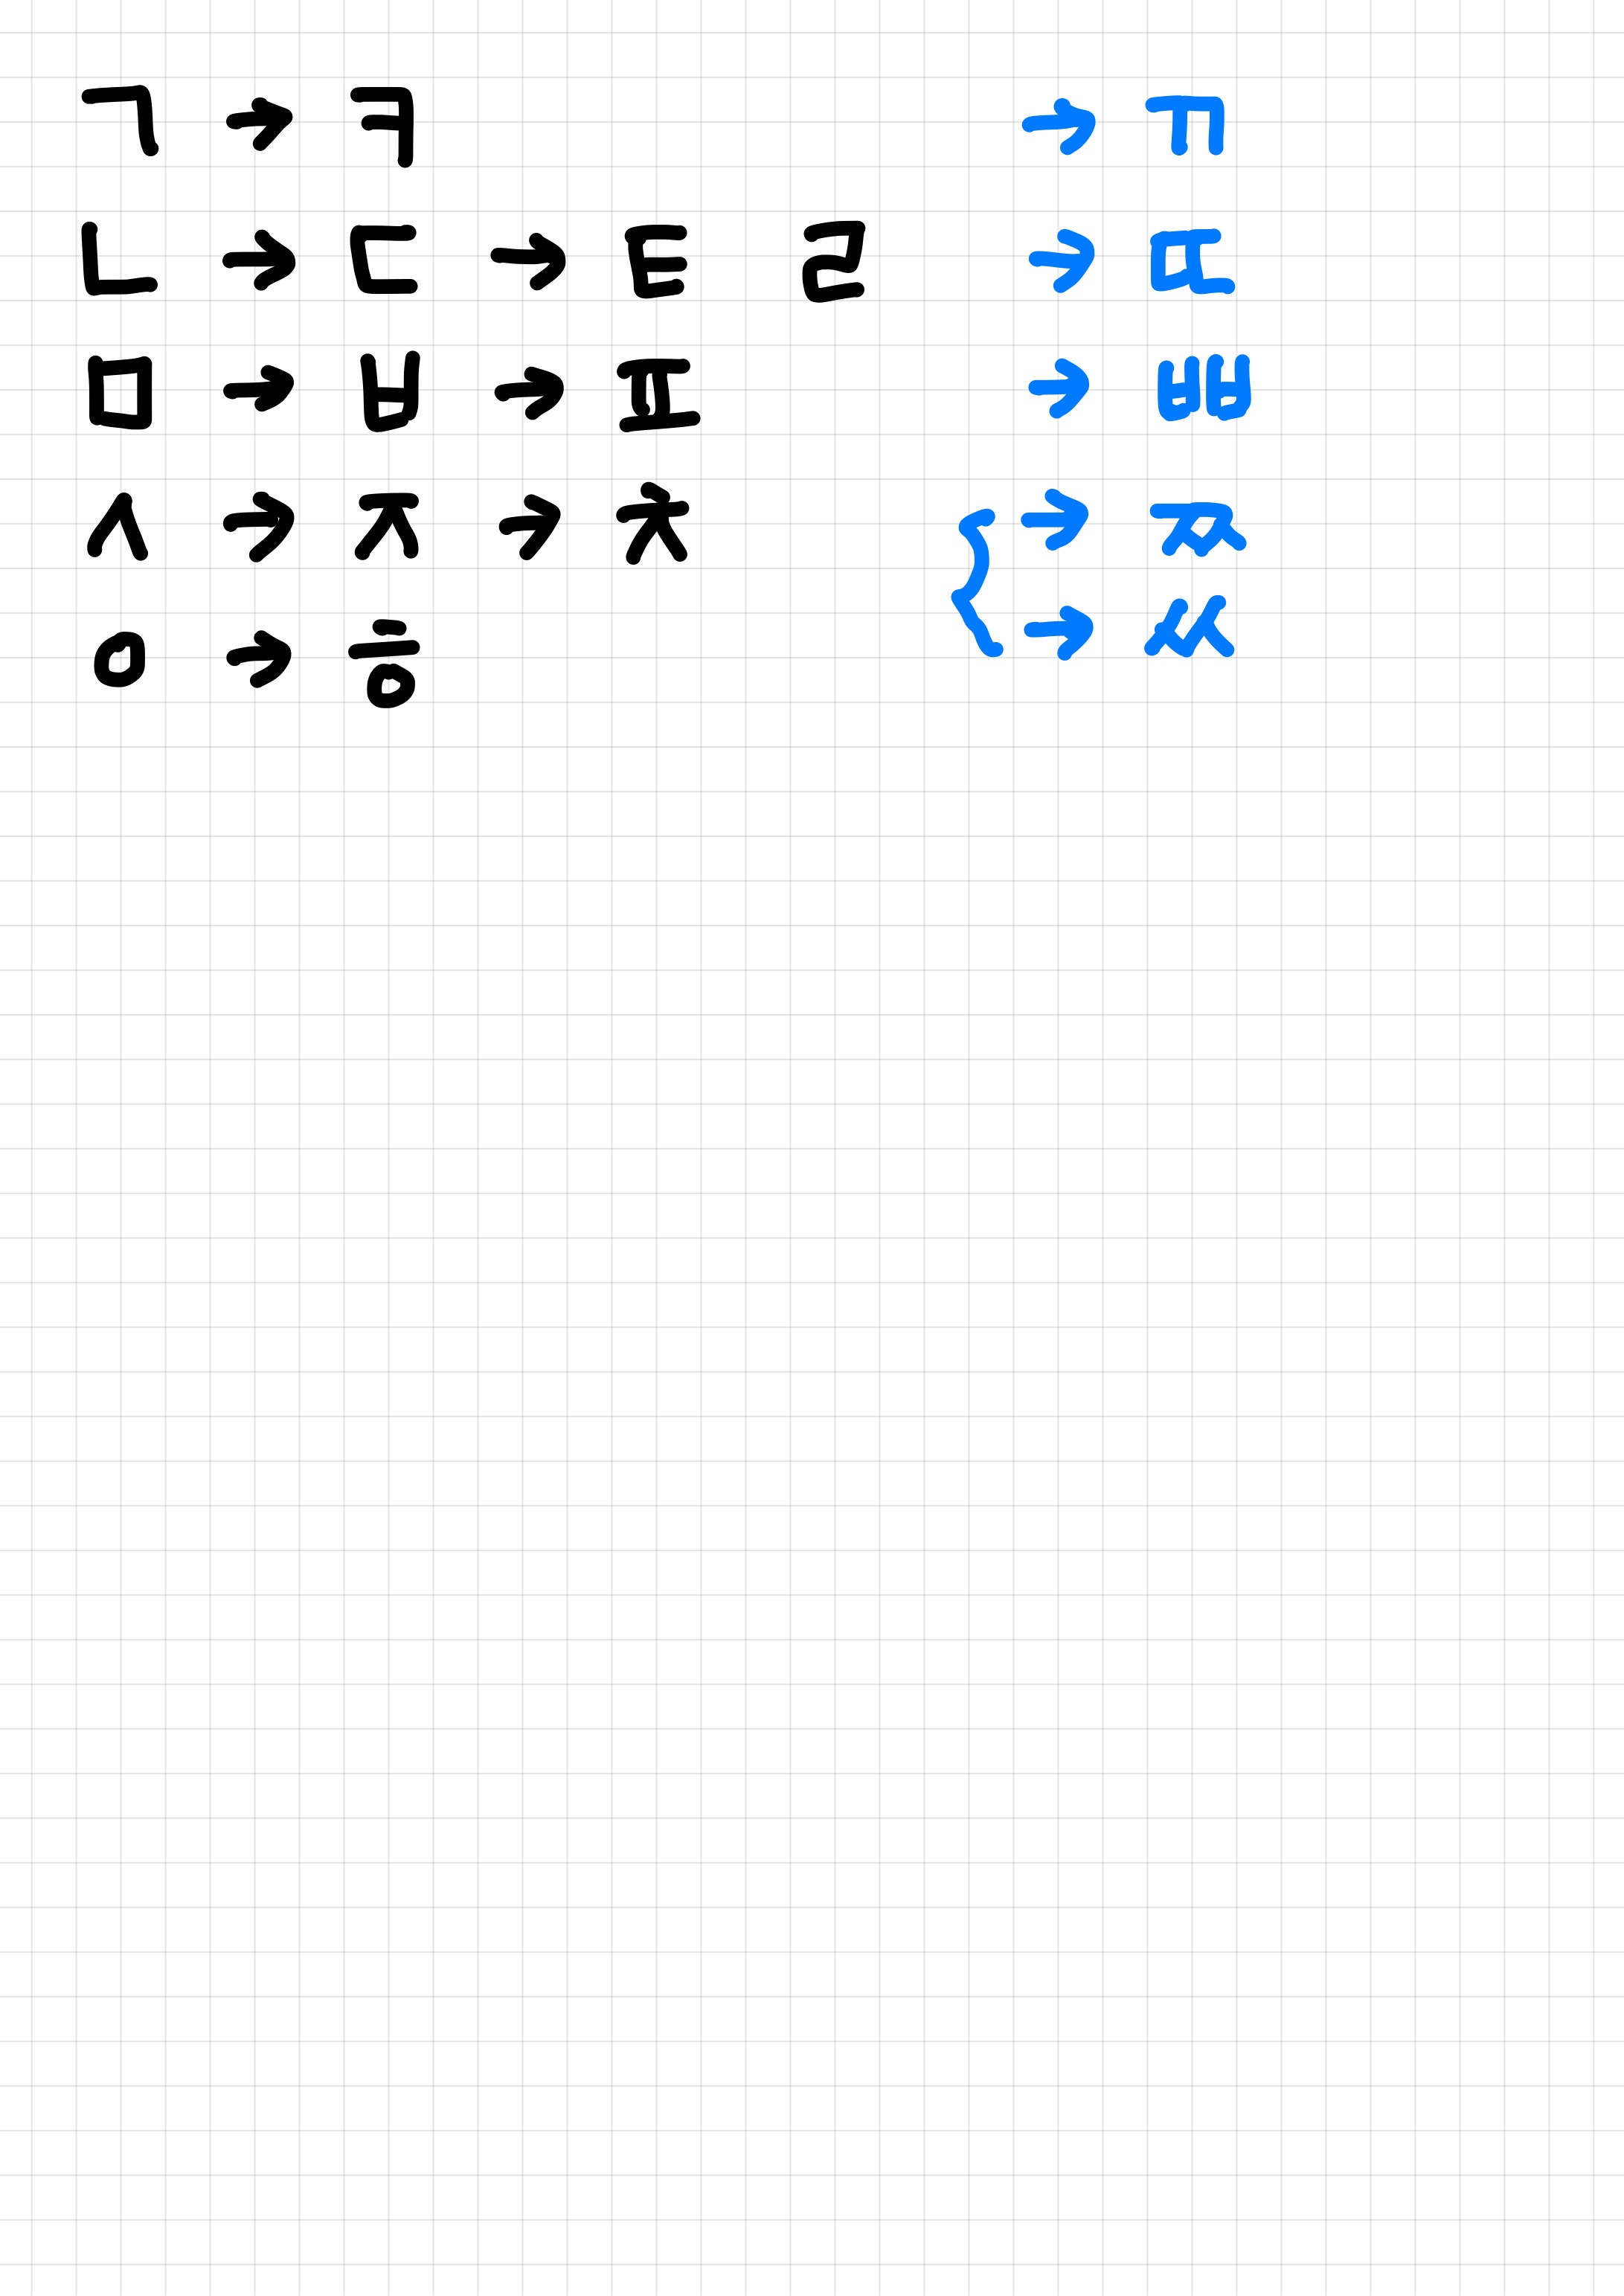 ㄱ → ㅋ → ㄲ
ㄴ → ㄷ → ㅌ ㄹ → ㄸ
ㅁ → ㅂ → ㅍ → ㅃ
ㅅ → ㅈ → ㅊ { → ㅉ
ㅇ → ㅎ → ㅆ